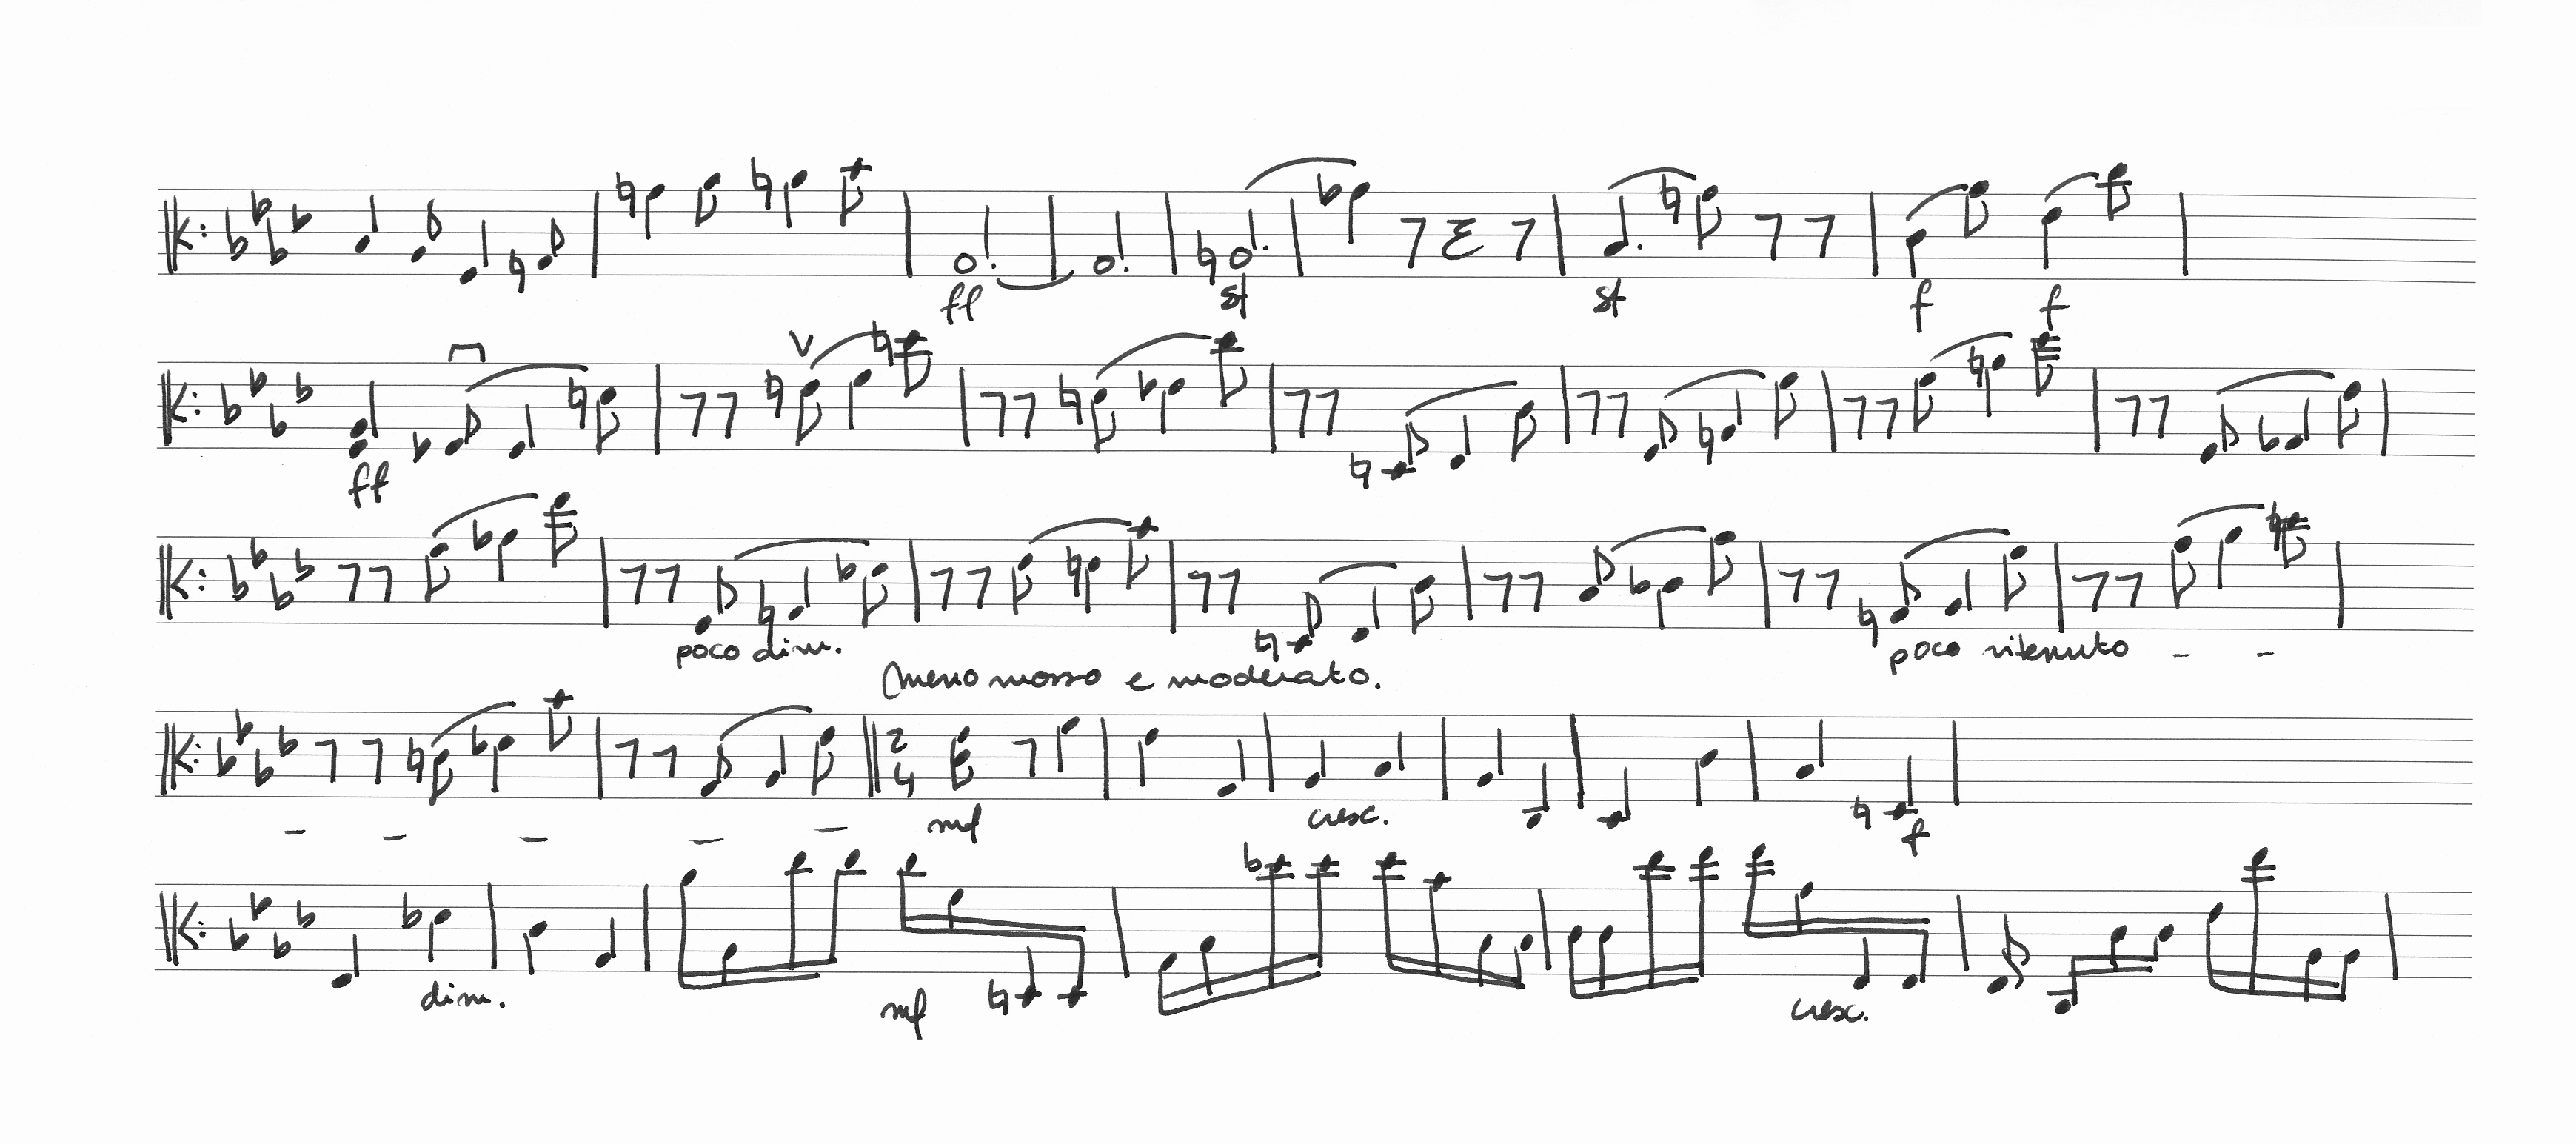 ff sf sf f f
V
ff
poco dim. poco ritenuto - -
Meno mosso e moderato.
2 4
- - - - - mf cresc. f
dim. mf cresc.